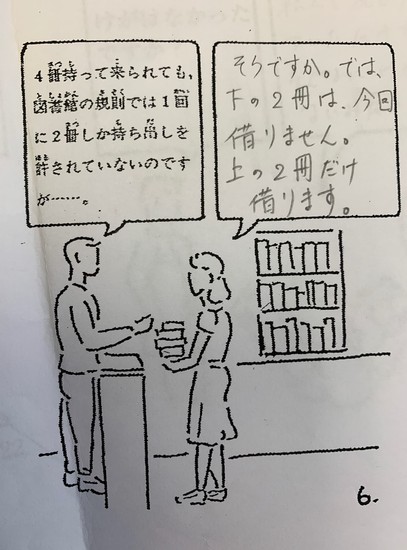 4冊持って来られても、
図書館の規則では1回
に2冊しか持ち出しを
許されていないのです
が……。
そうですか。では、
下の2冊は、今回
借りません。
上の2冊だけ
借ります。
6.